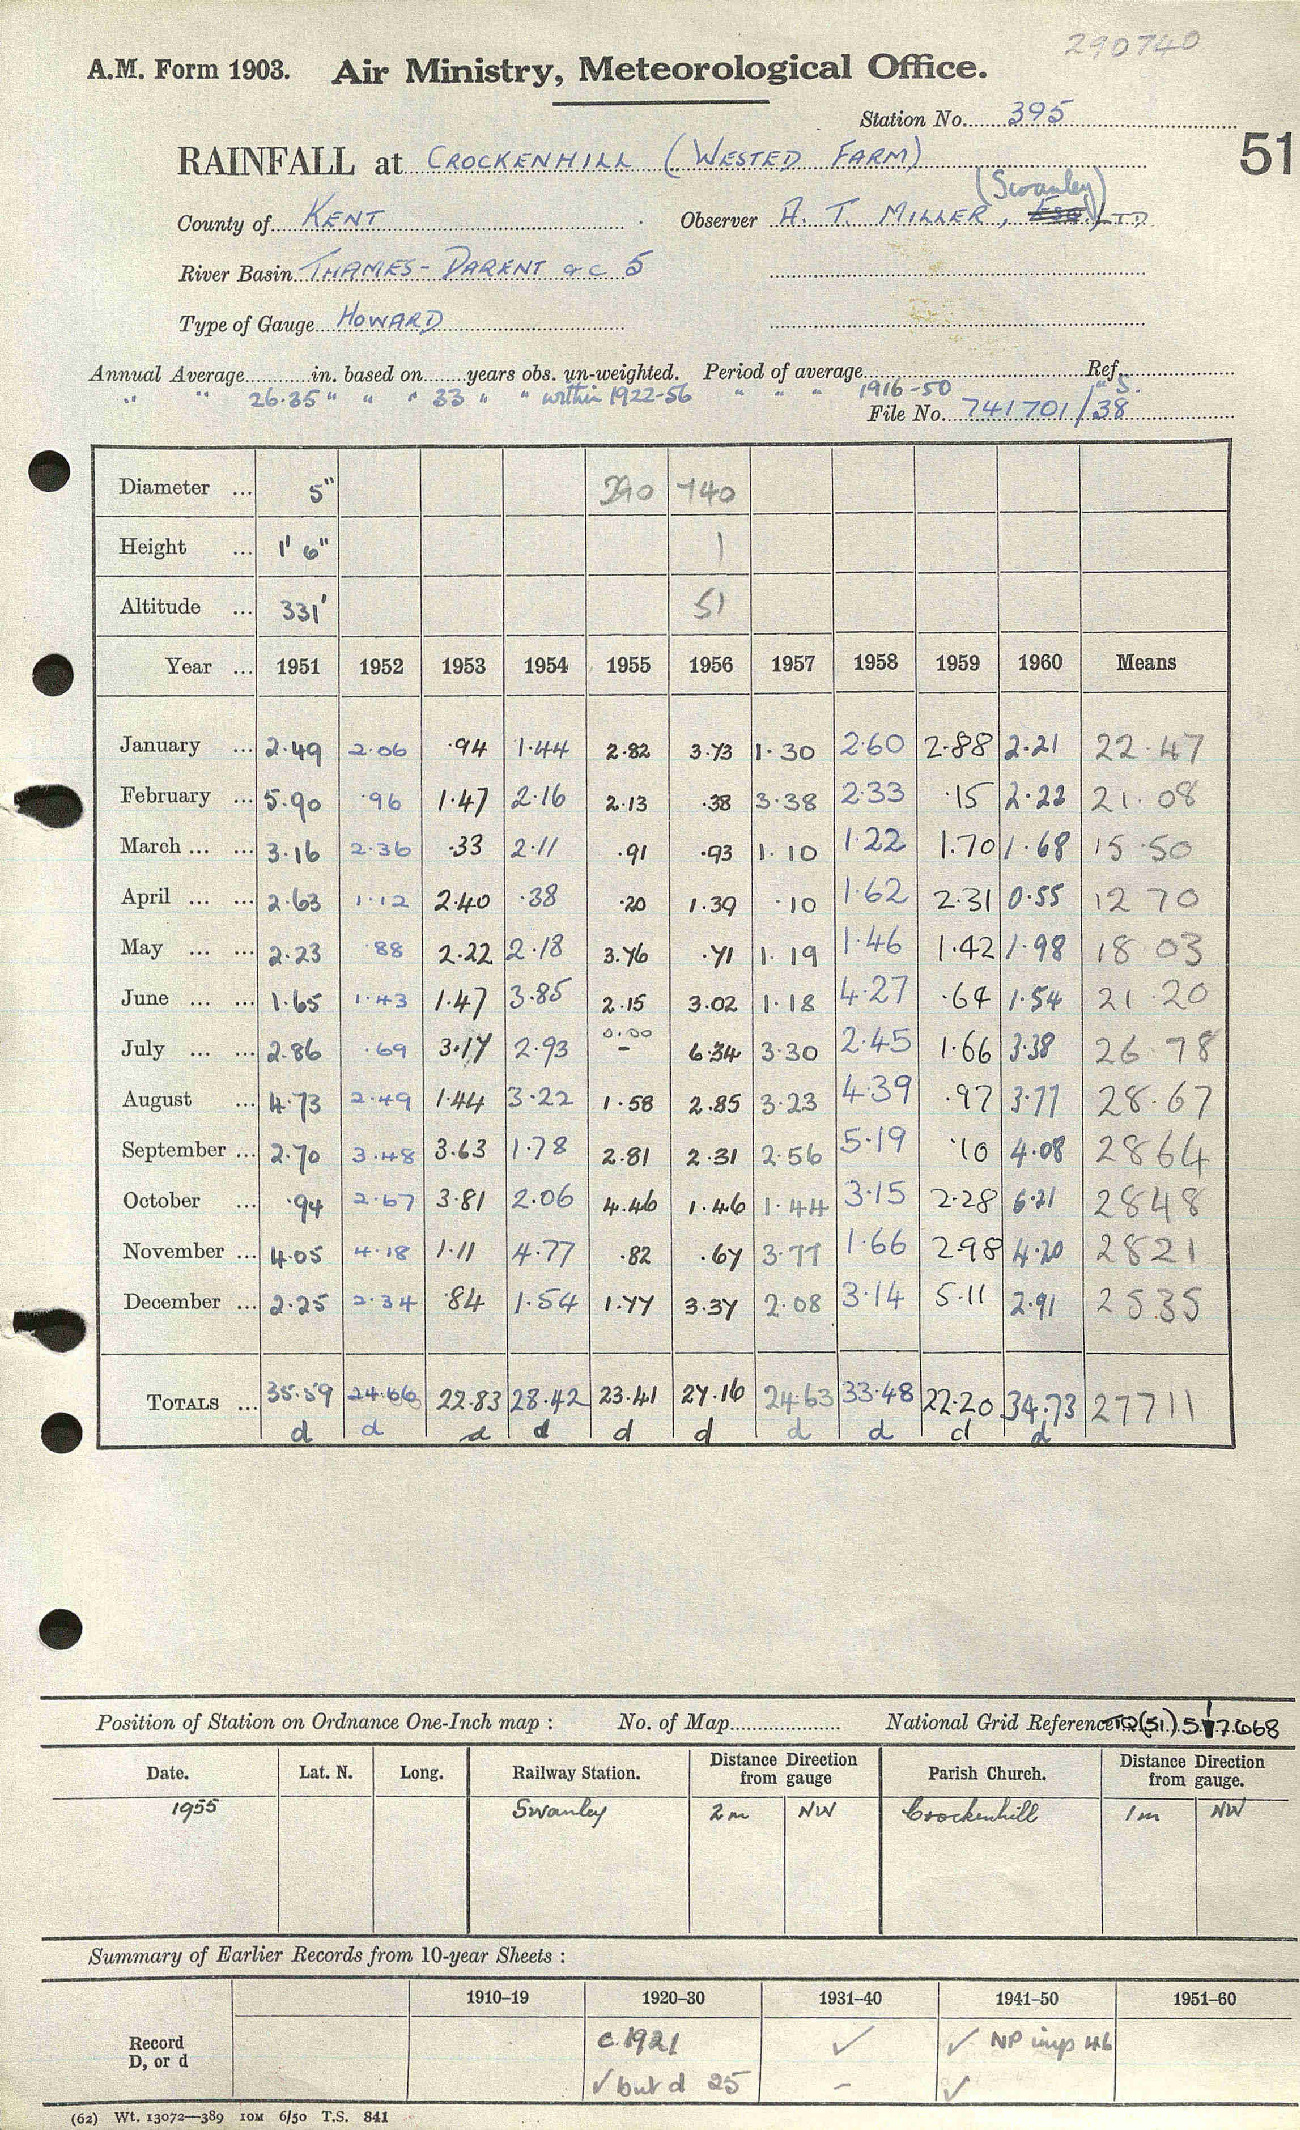 290740
A.M. Form 1903. Air Ministry, Meteorological Office.
Station No. 395
51
RAINFALL at CROCKENHILL (WESTED FARM)
(Swanley)
County of KENT Observer A. T. MILLER, Esq. LTD
River Basin THAMES - DARENT &c 5
Type of Gauge HOWARD
Annual Average in. based on years obs. un-weighted. Period of average Ref.
" " 26.35 " " " 33 " " within 1922-56 " " " 1916-50 " S.
File No. 741701/38
Diameter ... 5" 290 740
Height ... 1' 6" 1
Altitude ... 331' 51
Year ... 1951 1952 1953 1954 1955 1956 1957 1958 1959 1960 Means
January ... 2.49 2.06 .94 1.44 2.82 3.73 1.30 2.60 2.88 2.21 22.47
February ... 5.90 .96 1.47 2.16 2.13 .38 3.38 2.33 .15 2.22 21.08
March ... ... 3.16 2.36 .33 2.11 .91 .93 1.10 1.22 1.70 1.68 15.50
April ... ... 2.63 1.12 2.40 .38 .20 1.39 .10 1.62 2.31 0.55 12 70
May ... ... 2.23 .88 2.22 2.18 3.76 .71 1.19 1.46 1.42 1.98 18 03
June ... ... 1.65 1.43 1.47 3.85 2.15 3.02 1.18 4.27 .64 1.54 21 20
0.00
July ... ... 2.86 .69 3.17 2.93 - 6.34 3.30 2.45 1.66 3.38 26 78
August ... 4.73 2.49 1.44 3.22 1.58 2.85 3.23 4.39 .97 3.77 28.67
September ... 2.70 3.48 3.63 1.78 2.81 2.31 2.56 5.19 .10 4.08 2864
October ... .94 2.67 3.81 2.06 4.46 1.46 1.44 3.15 2.28 6.21 2848
November ... 4.05 4.18 1.11 4.77 .82 .67 3.77 1.66 2.98 4.20 2821
December ... 2.25 2.34 .84 1.54 1.77 3.37 2.08 3.14 5.11 2.91 2535
TOTALS ... 35.59 24.66 22.83 28.42 23.41 27.16 24.63 33.48 22.20 34.73 27711
d d d d d d d d d d
Position of Station on Ordnance One-Inch map : No. of Map National Grid Reference TQ(51)
Date. Lat. N. Long. Railway Station. Distance Direction from gauge Parish Church. Distance Direction from gauge.
1955 Swanley 2m NW Crockenhill 1m NW
Summary of Earlier Records from 10-year Sheets :
1910-19 1920-30 1931-40 1941-50 1951-60
Record c.1921 ✓ ✓ NP imp 46
D, or d ✓ but d 25 - ✓
(62) Wt. 13072—389 10M 6/50 T.S. 841